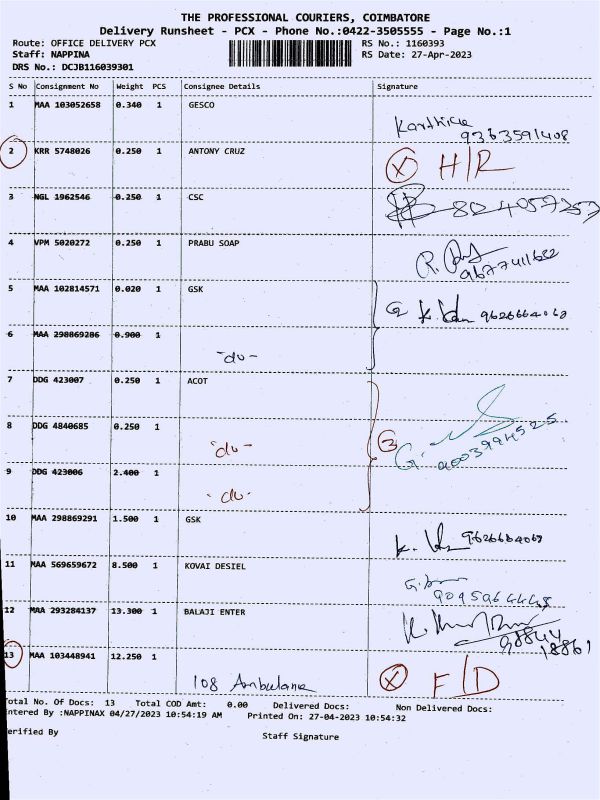 THE PROFESSIONAL COURIERS, COIMBATORE
Delivery Runsheet - PCX - Phone No.:0422-3505555 - Page No.:1
Route: OFFICE DELIVERY PCX RS No.: 1160393
Staff: NAPPINA RS Date: 27-Apr-2023
DRS No.: DCJB116039301
S No Consignment No Weight PCS Consignee Details Signature
1 MAA 103052658 0.340 1 GESCO
Karthick
9363591408
2 KRR 5748026 0.250 1 ANTONY CRUZ
X H/R
3 NGL 1962546 0.250 1 CSC
4 VPM 5020272 0.250 1 PRABU SOAP
R.
9677411632
5 MAA 102814571 0.020 1 GSK
2 9626664068
6 MAA 298869286 0.900 1
-do-
7 DDG 423007 0.250 1 ACOT
8 DDG 4840685 0.250 1
-do-
3
9 DDG 423006 2.400 1
-do-
10 MAA 298869291 1.500 1 GSK
11 MAA 569659672 8.500 1 KOVAI DESIEL
12 MAA 293284137 13.300 1 BALAJI ENTER
98844
18861
13 MAA 103448941 12.250 1
108 Ambulane X F/D
otal No. Of Docs: 13 Total COD Amt: 0.00 Delivered Docs: Non Delivered Docs:
ntered By :NAPPINAX 04/27/2023 10:54:19 AM Printed On: 27-04-2023 10:54:32
erified By Staff Signature